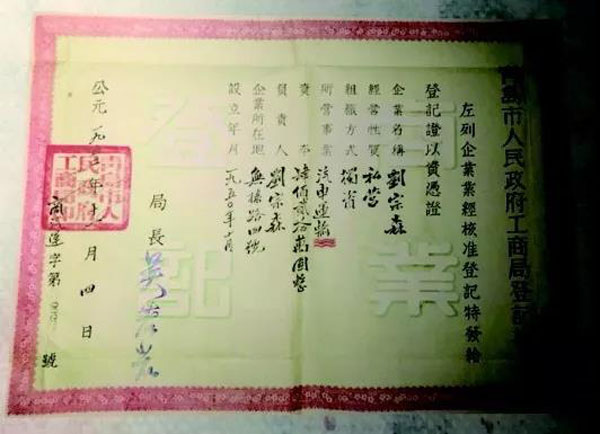 青島市人民政府工商局登記
左列企業業經核准登記特發給
登記證以資憑證
企業名稱 劉宗森
經營性質 私營
組織方式 獨資
所營事業 汽車運輸
資本 陸佰貳拾萬圓整
負責人 劉宗森
企業所在地 無棣路四號
設立年月 一九五〇年十月
局長
公元一九五〇年十一月四日
字第 號
青島市人民政府工商局印
營業
登記